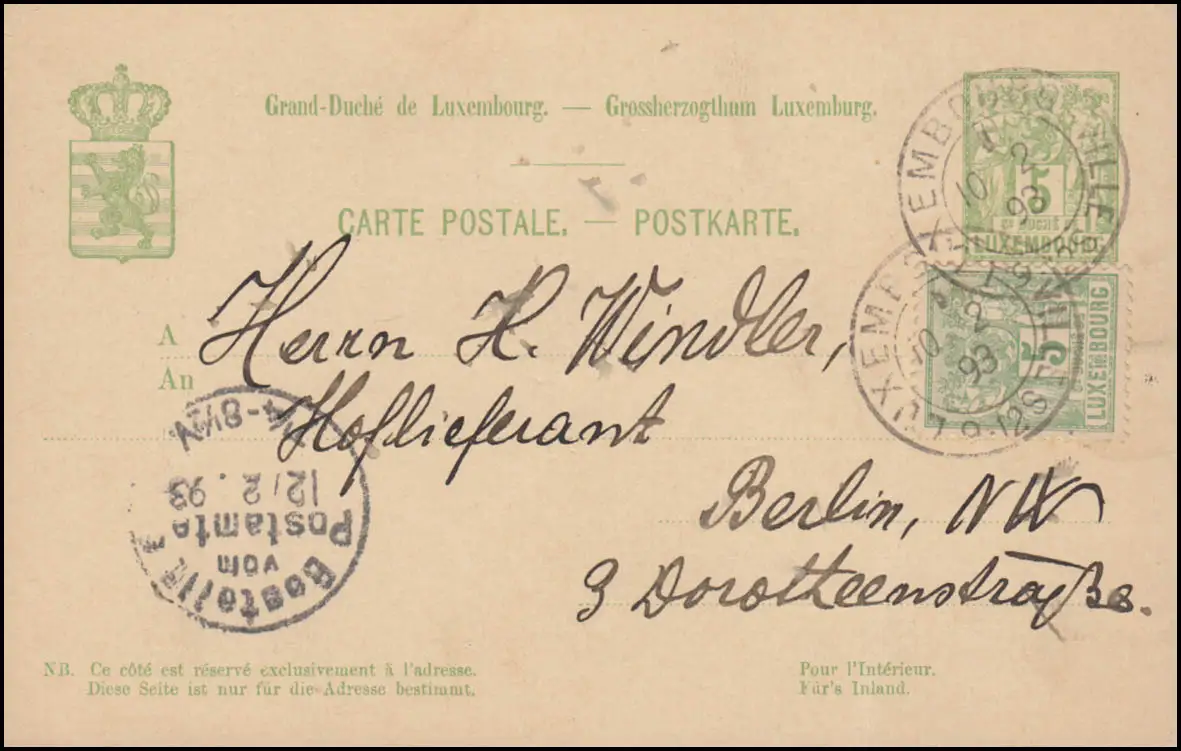 Grand-Duché de Luxembourg. — Grossherzogthum Luxemburg.
CARTE POSTALE. — POSTKARTE.
5
LUXEMBOURG
LUXEMBOURG VILLE
10 2
93
5
LUXEMBOURG
LUXEMBOURG VILLE
10 2
93
9-12S
A
An
Herrn H. Windler,
Hoflieferant
Berlin, NW
3 Dorotheenstraße.
Bestellt
vom
Postamte
12/2.93
8½V.
NB. Ce côté est réservé exclusivement à l'adresse.
Diese Seite ist nur für die Adresse bestimmt.
Pour l'Intérieur.
Für's Inland.